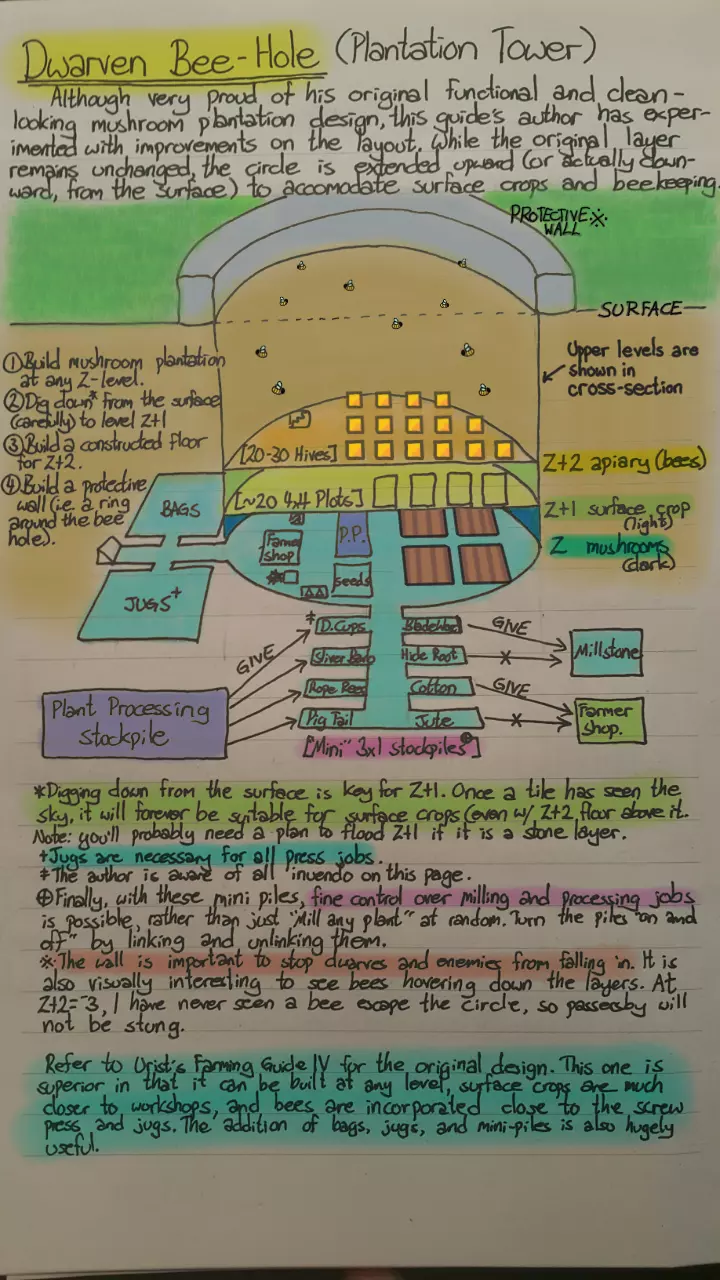 Dwarven Bee-Hole (Plantation Tower)
Although very proud of his original functional and clean-
looking mushroom plantation design, this guide's author has exper-
imented with improvements on the layout. While the original layer
remains unchanged, the circle is extended upward (or actually down-
ward, from the surface) to accomodate surface crops and beekeeping.
PROTECTIVE※
WALL
SURFACE
Upper levels are
shown in
cross-section
①Build mushroom plantation
at any Z-level.
②Dig down* from the surface
(carefully) to level Z+1
③Build a constructed floor
for Z+2.
④Build a protective
wall (i.e. a ring
around the bee
hole).
[20-30 Hives]
Z+2 apiary (bees)
[~20 4x4 Plots]
Z+1 surface crop
(light)
Z mushrooms
(dark)
BAGS
JUGS+
Farmer
shop
P.P.
seeds
D.Cups
Sliver Barb
Rope Reed
Pig Tail
Hide Root
Cotton
Jute
GIVE
GIVE
X
GIVE
X
Millstone
Farmer
Shop.
Plant Processing
Stockpile
["Mini" 3x1 stockpiles⊕]
*Digging down from the surface is key for Z+1. Once a tile has seen the
sky, it will forever be suitable for surface crops (even w/ Z+2 floor above it.
Note: you'll probably need a plan to flood Z+1 if it is a stone layer.
+Jugs are necessary for all press jobs.
‡The author is aware of all inuendo on this page.
⊕Finally, with these mini piles, fine control over milling and processing jobs
is possible, rather than just "Mill any plant" at random. Turn the piles "on and
off" by linking and unlinking them.
※The wall is important to stop dwarves and enemies from falling in. It is
also visually interesting to see bees hovering down the layers. At
Z+2=-3, I have never seen a bee escape the circle, so passersby will
not be stung.
Refer to Urist's Farming Guide IV for the original design. This one is
superior in that it can be built at any level, surface crops are much
closer to workshops, and bees are incorporated close to the screw
press and jugs. The addition of bags, jugs, and mini-piles is also hugely
useful.